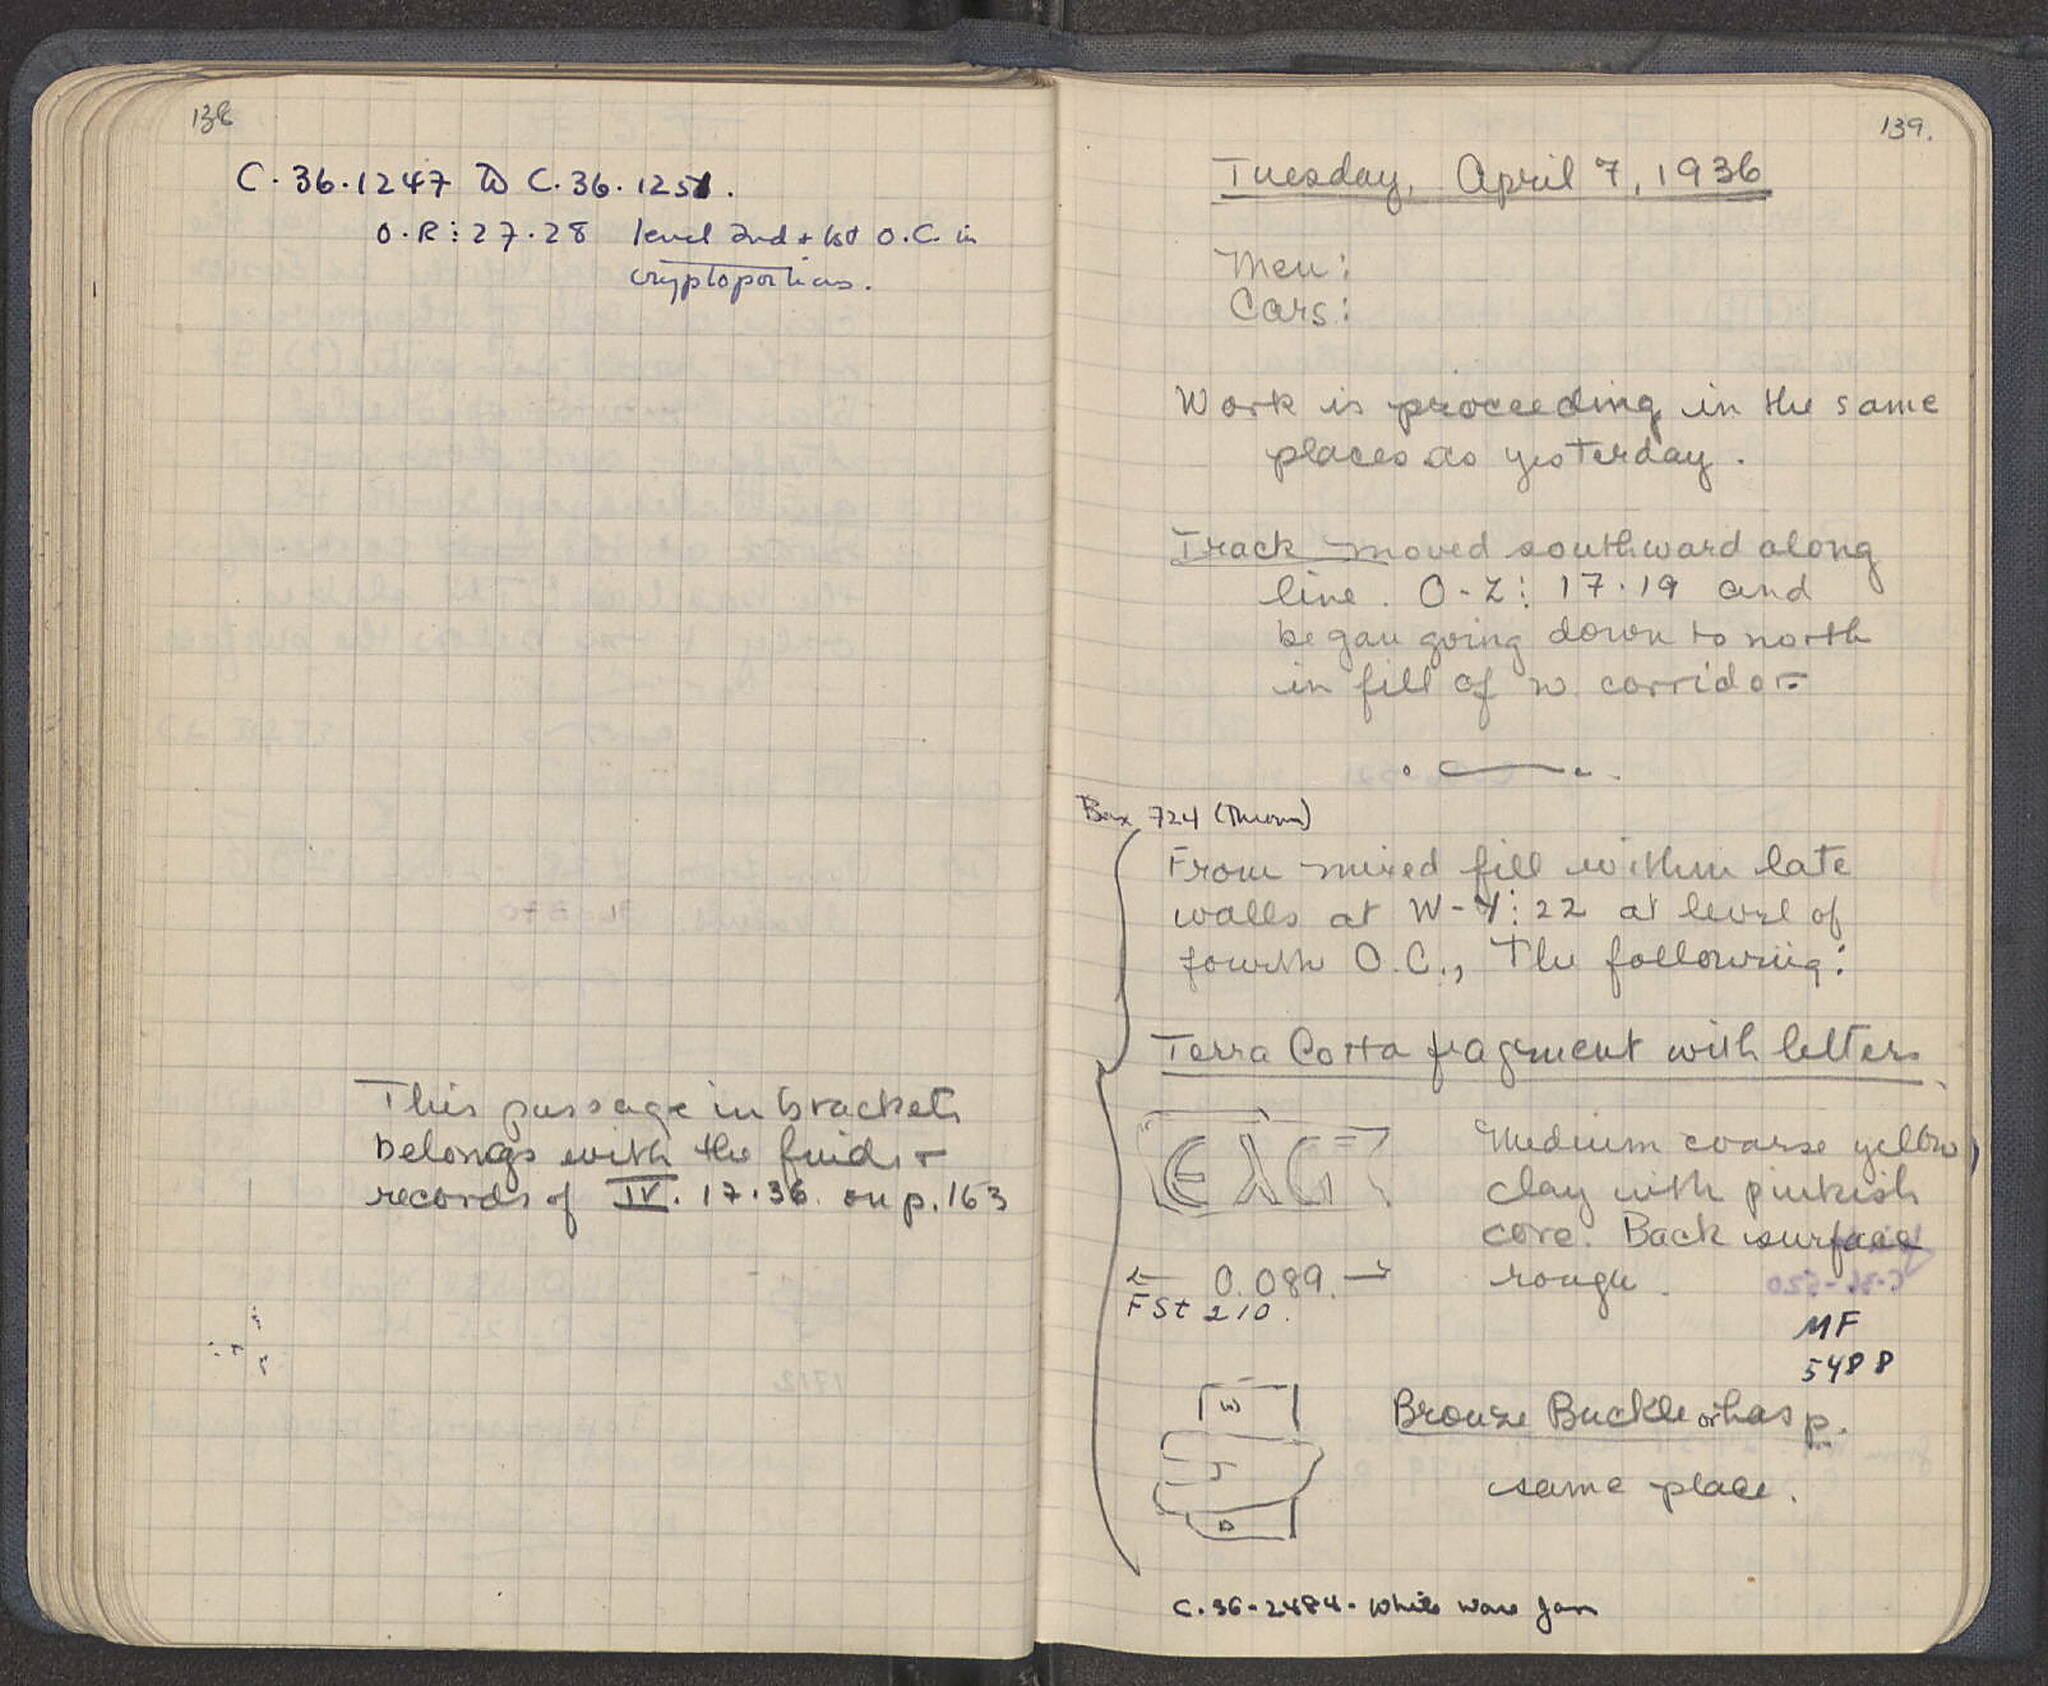 138
C. 36. 1247 to C. 36. 1251.
O.R: 27-28 level 2nd + 1st O.C. in
cryptoporticus.
This passage in brackets
belongs with the finds +
records of IV. 17. 36. on p. 163
139.
Tuesday, April 7, 1936
Men:
Cars:
Work is proceeding in the same
places as yesterday.
Track moved southward along
line. O-Z: 17-19 and
began going down to north
in fill of w. corridor
Box 724 (Thrown)
From mixed fill within late
walls at W-Y: 22 at level of
fourth O.C., The following:
Terra Cotta fragment with letters.
ΕΛΓ
Medium coarse yellow
clay with pinkish
core. Back surface
rough.
← 0.089. →
FSt 210.
MF
5488
Bronze Buckle or hasp.
same place.
C-36-2484- White ware Jar